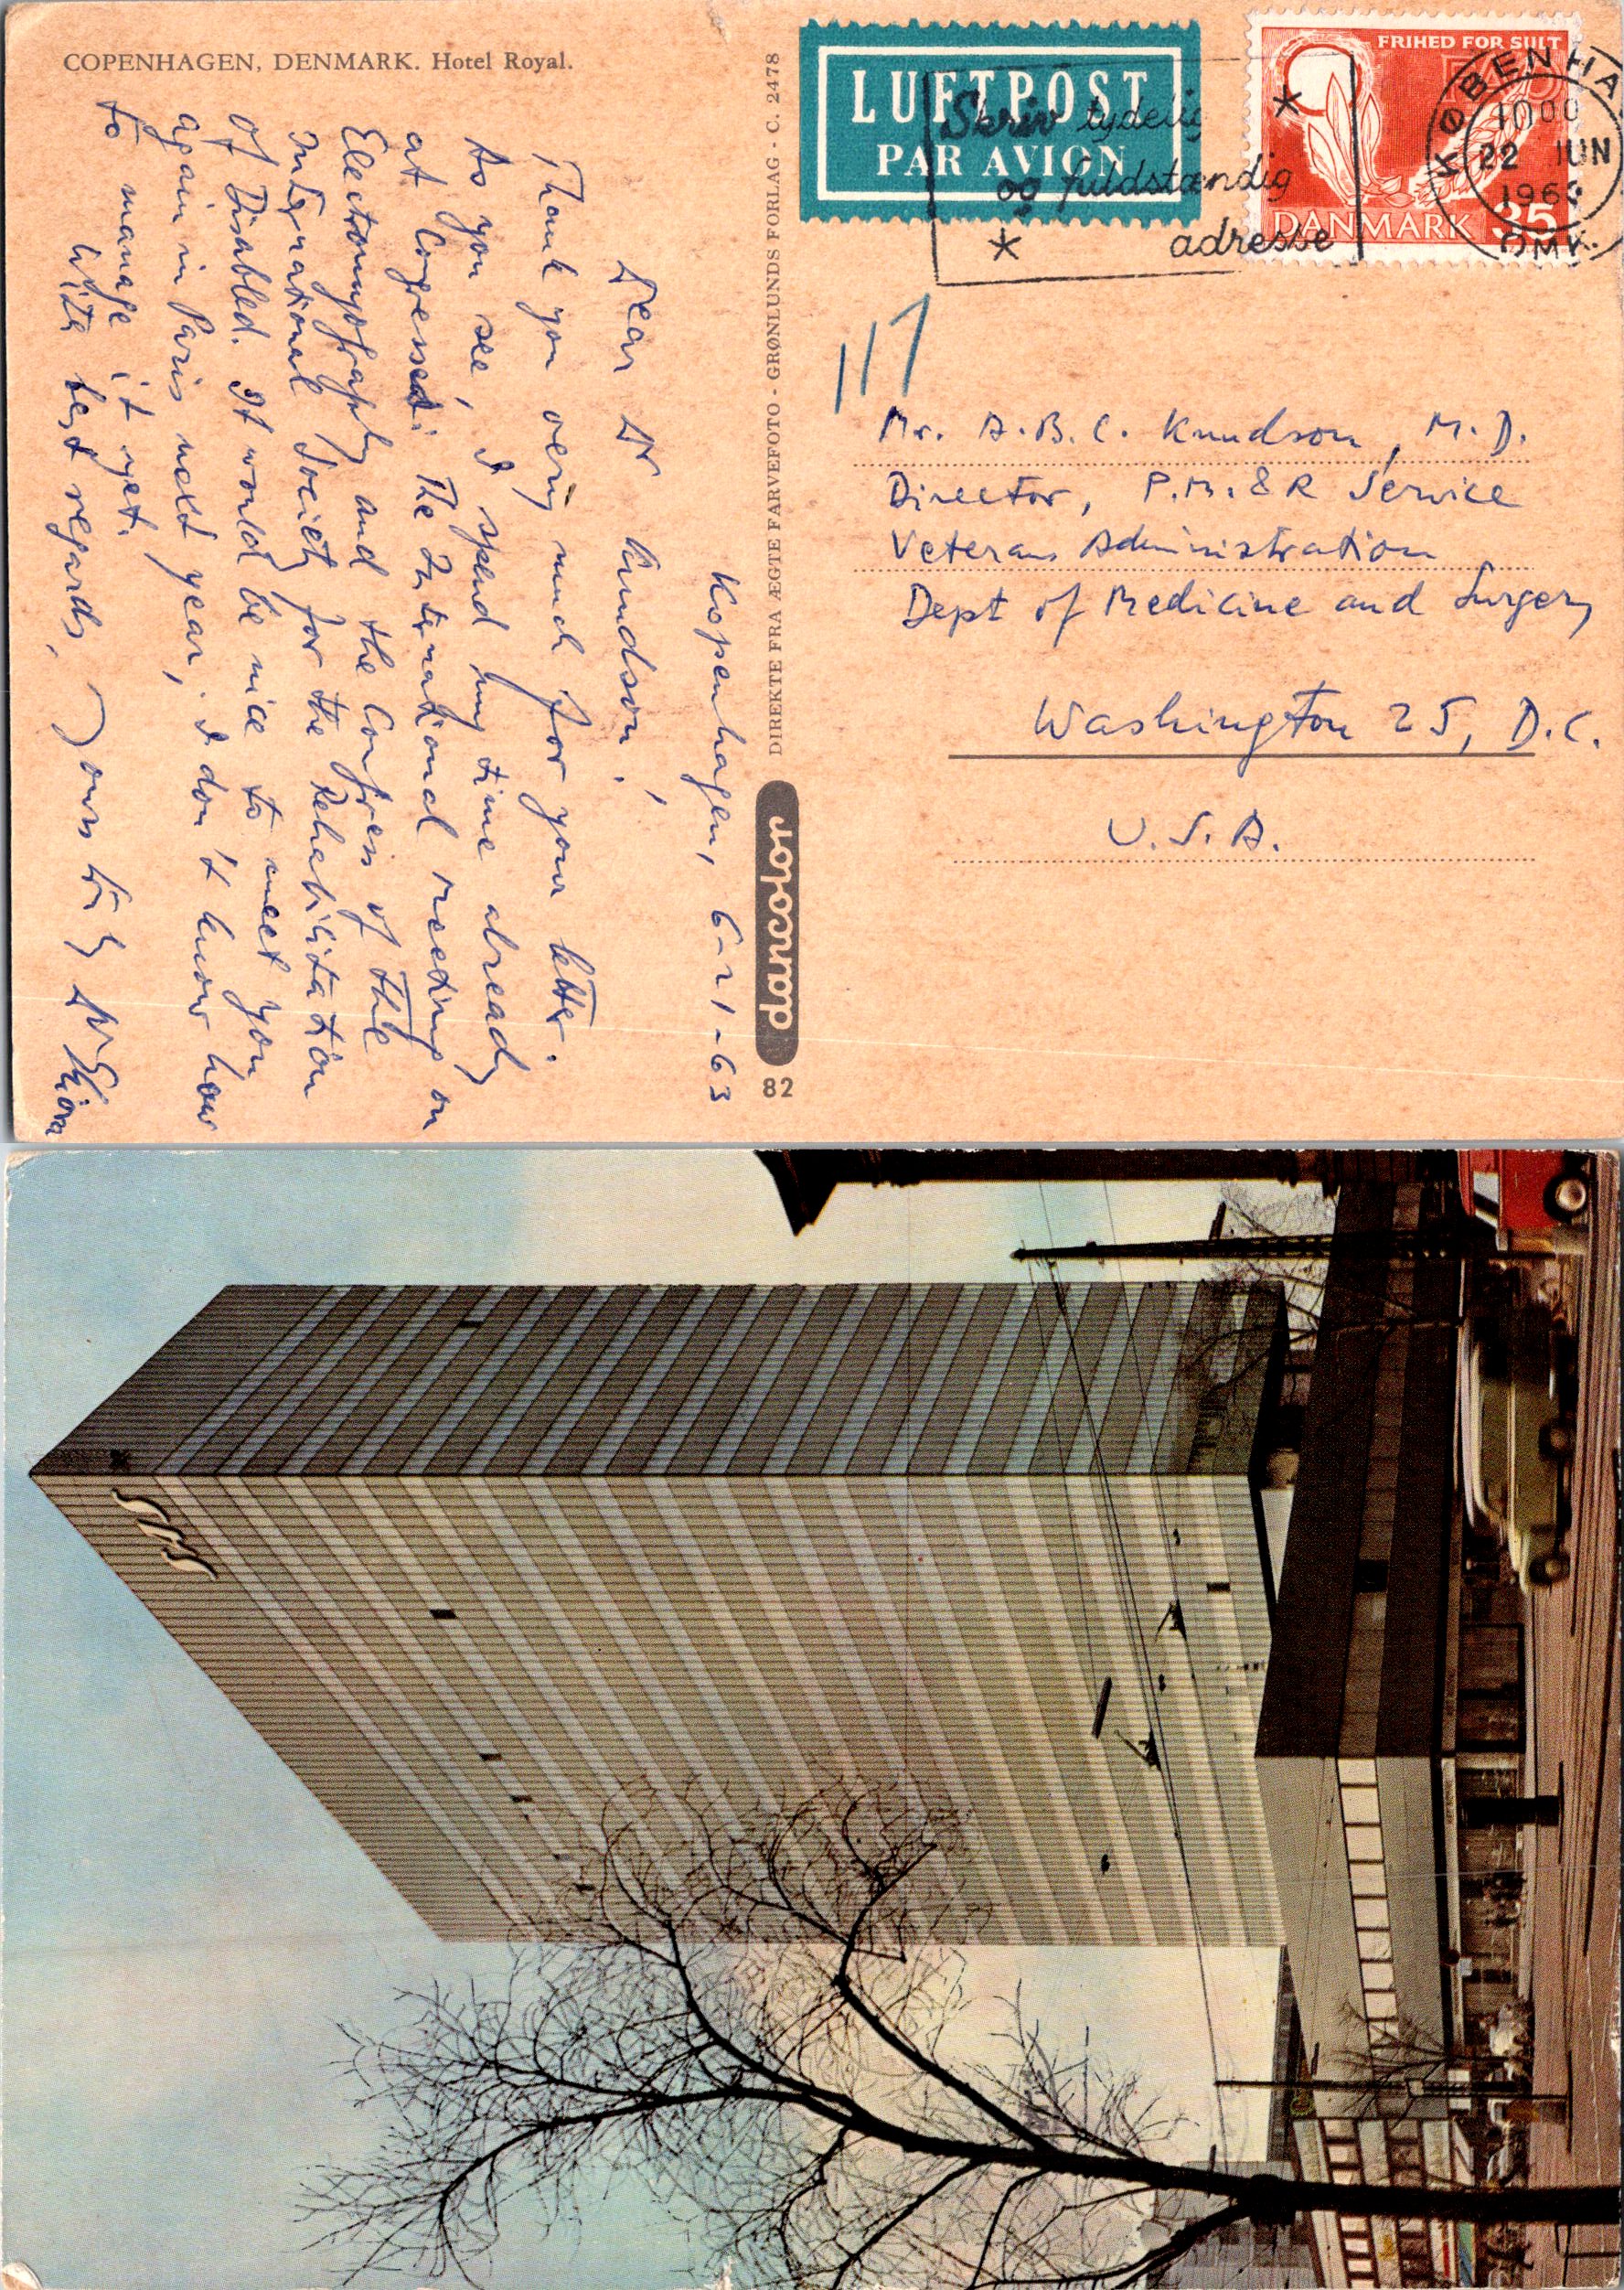 COPENHAGEN, DENMARK. Hotel Royal.
LUFTPOST
PAR AVION
Skriv tydelig
og fuldstændig
adresse
FRIHED FOR SULT
DANMARK 35
KØBENHA
1000
22 JUN
196
OMK.
Kopenhagen, 6-21-63
Dear Dr Knudson,
Thank you very much for your letter.
As you see, I spend my time already
at Congresses: The International meeting on
Electromyography and the Congress of the
International Society for the Rehabilitation
of Disabled. It would be nice to meet you
again in Paris next year; I don't know how
to manage it yet.
With best regards, Yours
DIREKTE FRA ÆGTE FARVEFOTO - GRØNLUNDS FORLAG - C. 2478
dancolor
82
Mr. A.B.C. Knudson, M.D.
Director, P.M. & R Service
Veterans Administration
Dept of Medicine and Surgery
Washington 25, D.C.
U.S.A.
SAS